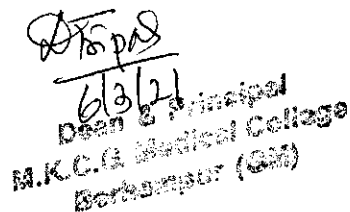 6/3/21
Dean & Principal
M.K.C.G. Medical College
Berhampur (GM)